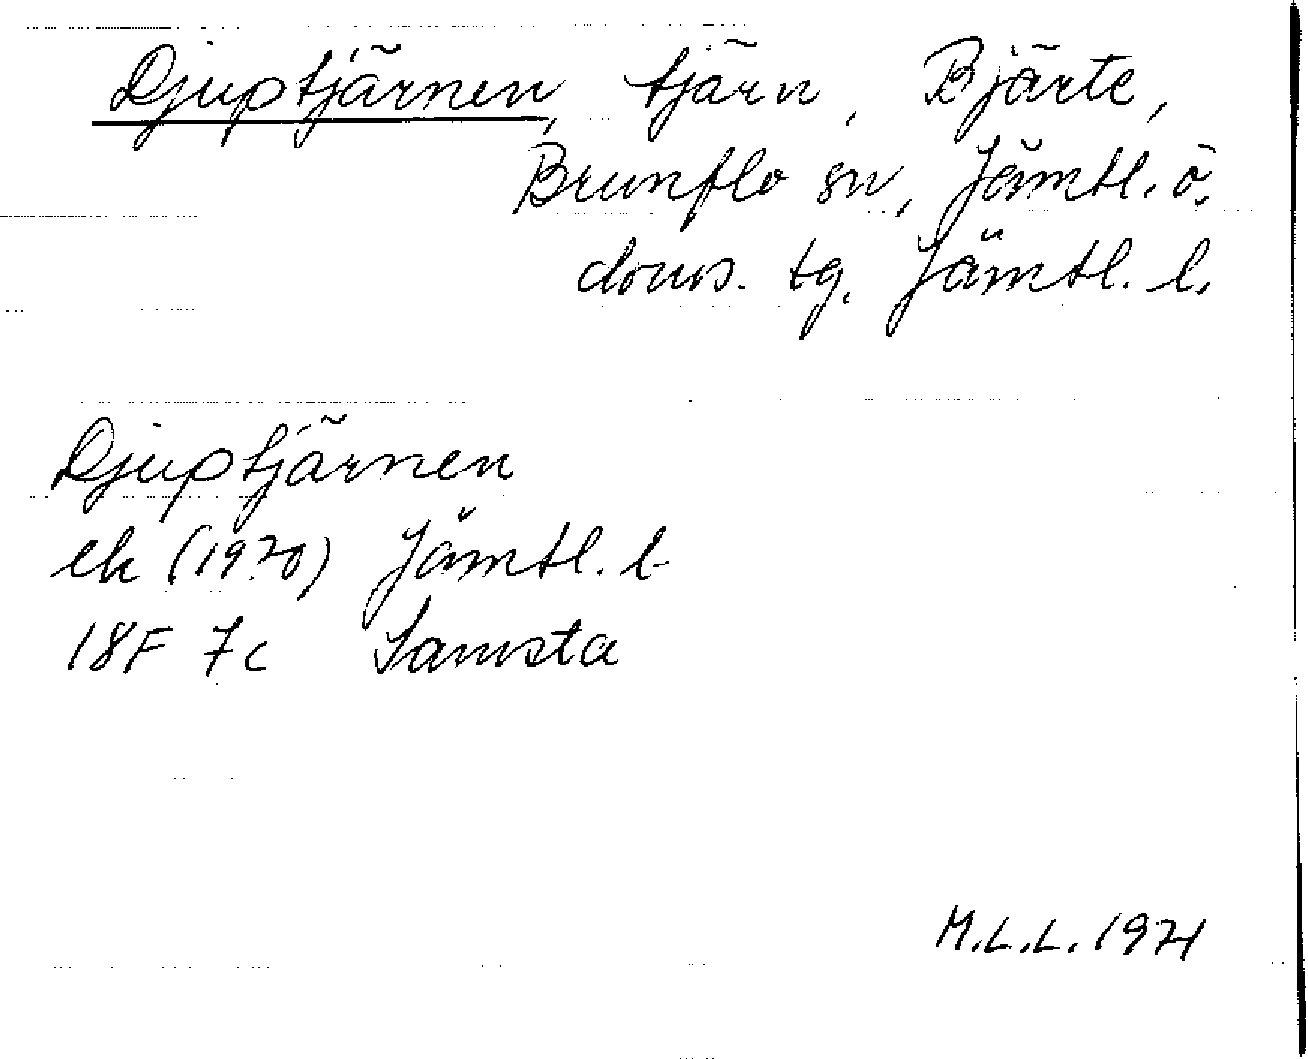 Djuptjärnen, tjärn, Bjärte,
Brunflo sn, Jämtl. ö.
doms. tg. Jämtl. l.
Djuptjärnen
ek (1970) Jämtl. l
18F 7c Samsta
M.L.L. 1971